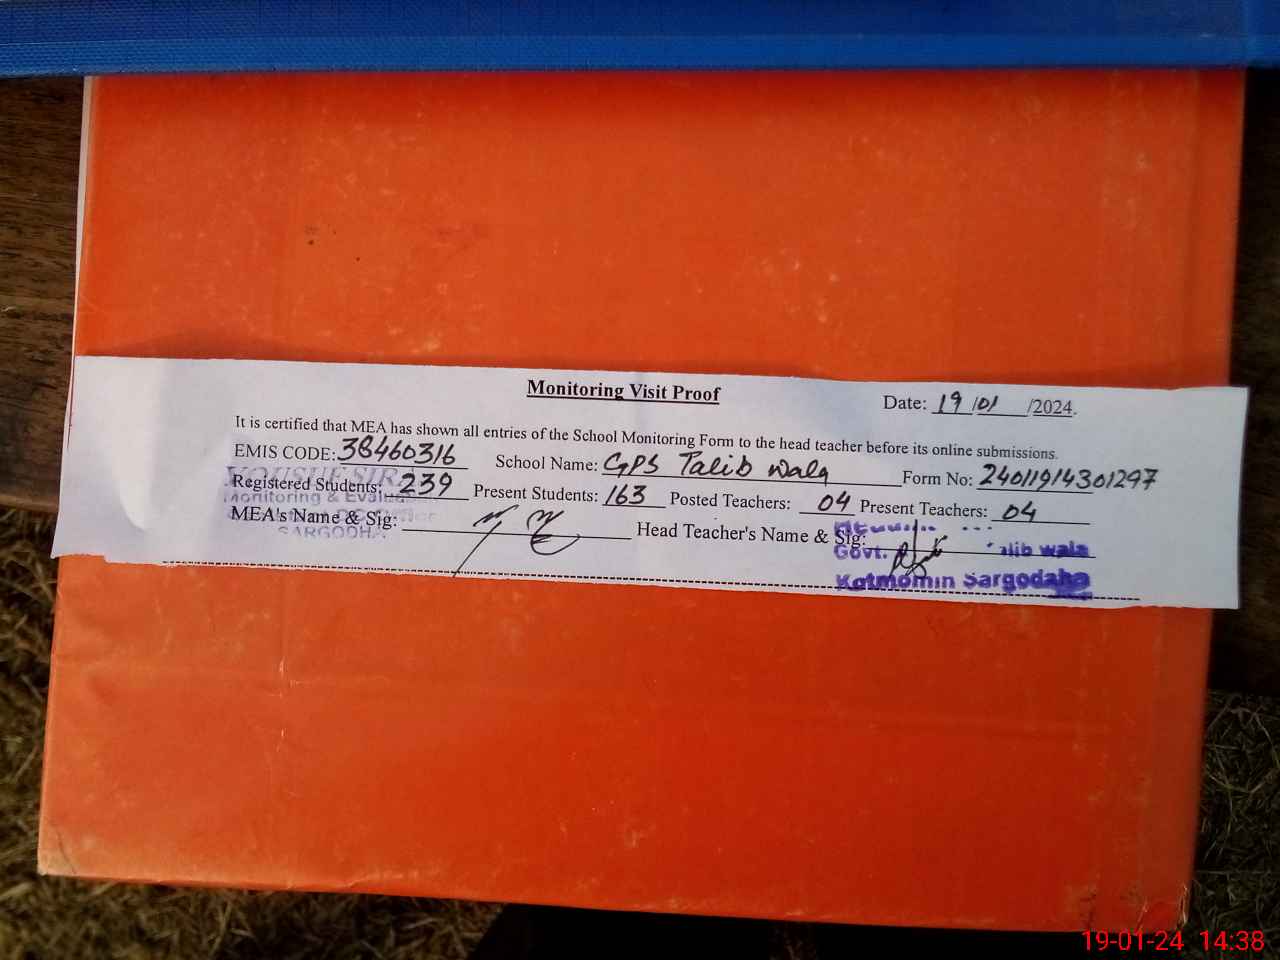 Monitoring Visit Proof
Date: 19/01/2024.
It is certified that MEA has shown all entries of the School Monitoring Form to the head teacher before its online submissions.
EMIS CODE: 38460316 School Name: GPS Talib Wala Form No: 24011914301297
Registered Students: 239 Present Students: 163 Posted Teachers: 04 Present Teachers: 04
Monitoring &
MEA's Name & Sig: Head Teacher's Name & Sig:
SARGODHA
Govt. alib wala
Kotmomin Sargodaha
19-01-24 14:38